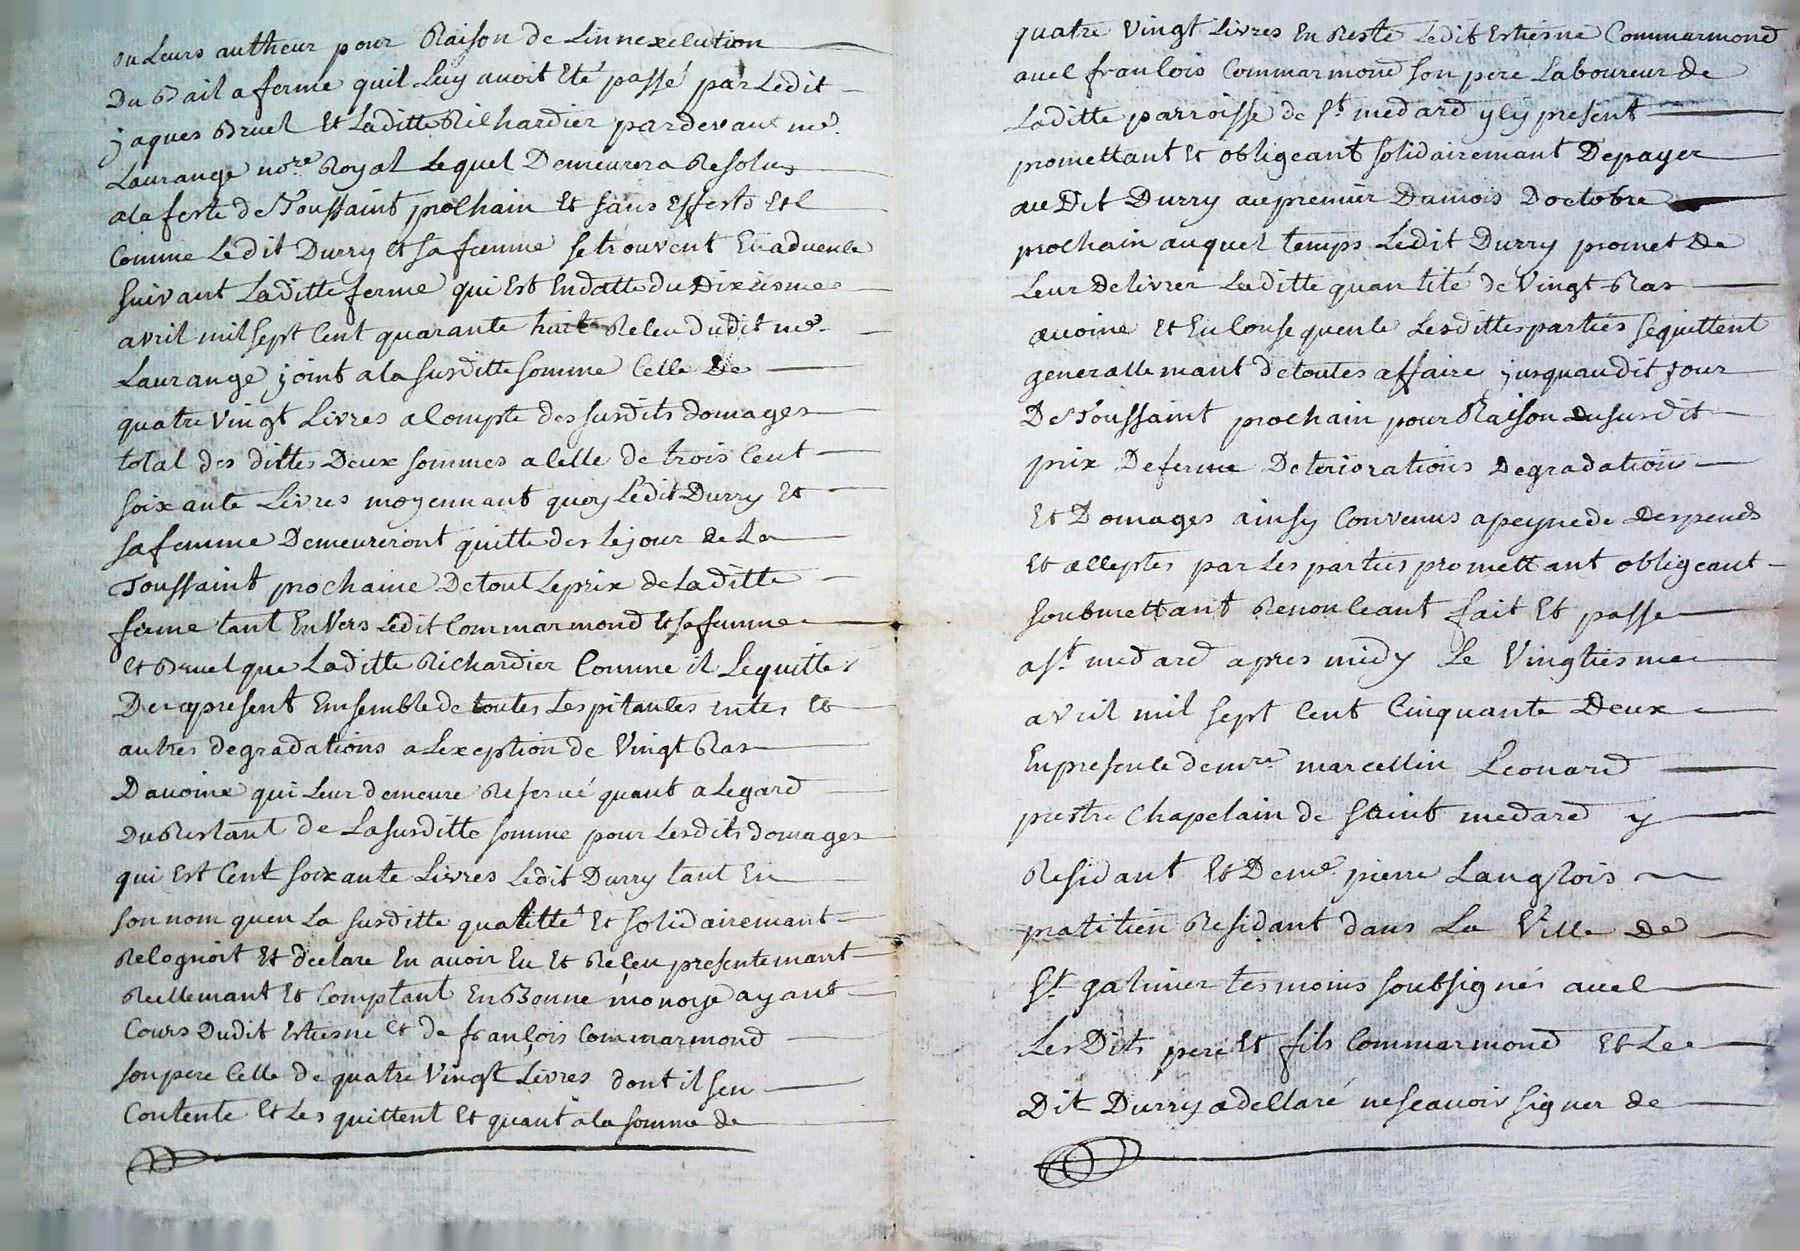 ou Leurs autheur pour Raison de Linnexecution
Du Bail a ferme quil Luy avoit Eté passé par Ledit
jaques Bruel Et Laditte Richardier pardevant me.
Laurange nore Royal Lequel Demeurera Resolus
a la feste de Toussaint prochain Et sans Efferts Et
Comme Ledit Durry Et sa femme se trouvent En advence
suivant Laditte ferme qui Est En datte du Dixiesme
avril mil sept Cent quarante huit Receu dudit me.
Laurange joint a la susditte somme Celle De
quatre Vingt Livres a Compte des susdits domages
total des dittes Deux sommes a Celle de trois Cent
soixante Livres moyennant quoy Ledit Durry Et
sa femme Demeureront quitte des Le jour De La
Toussaint prochaine De tout Le prix de Laditte
ferme tant EnVers Ledit Commarmond Et sa femme
Et Bruel que Laditte Richardier Comme il Le quitte
Des apresent Ensemble de toutes Les pitances Et
autres degradations a Lexception de Vingt Ras
Davoine qui Leur demeure Reservé quant a Legard
Du Restant de La susditte somme pour Lesdits domages
qui Est Cent soixante Livres Ledit Durry tant En
son nom quen La susditte qualitté Et solidairemant
Recognoit Et declare En avoir Eu Et Receu presentemant
Reellemant Et Comptant En Bonne monoye ayant
Cours Dudit Estiesne Et de francois Commarmond
son pere Celle de quatre Vingt Livres dont il sen
Contente Et Les quittent Et quant a la somme de
quatre Vingt Livres En Reste Ledit Estiesne Commarmond
avec francois Commarmond son pere Laboureur de
Laditte parroisse de St. medard y Cy present
promettant Et obligeant solidairemant De payer
au Dit Durry au premier Du mois Doctobre
prochain auquel temps Ledit Durry promet de
Leur Delivrer Laditte quantité de Vingt Ras
avoine Et En Consequence Lesdittes parties se quittent
generallemant de toutes affaire jusquaudit jour
De Toussaint prochain pour Raison du susdit
prix De ferme Deteriorations Degradations
Et Domages ainsy Convenus a peyne de Despends
Et acceptes par Les parties promettant obligeant
soubmettant Renonceant fait Et passe
a St. medard apres midy Le Vingtiesme
avril mil sept Cent Cinquante Deux
En presence de mre marcellin Leonard
prestre Chapelain de saint medard y
Residant Et De me. pierre Langlois
pratitien Residant dans La Ville De
St. galmier tesmoins soubsignés avec
Les Dits pere Et fils Commarmond Et Le
Dit Durry a declaré ne scavoir signer de